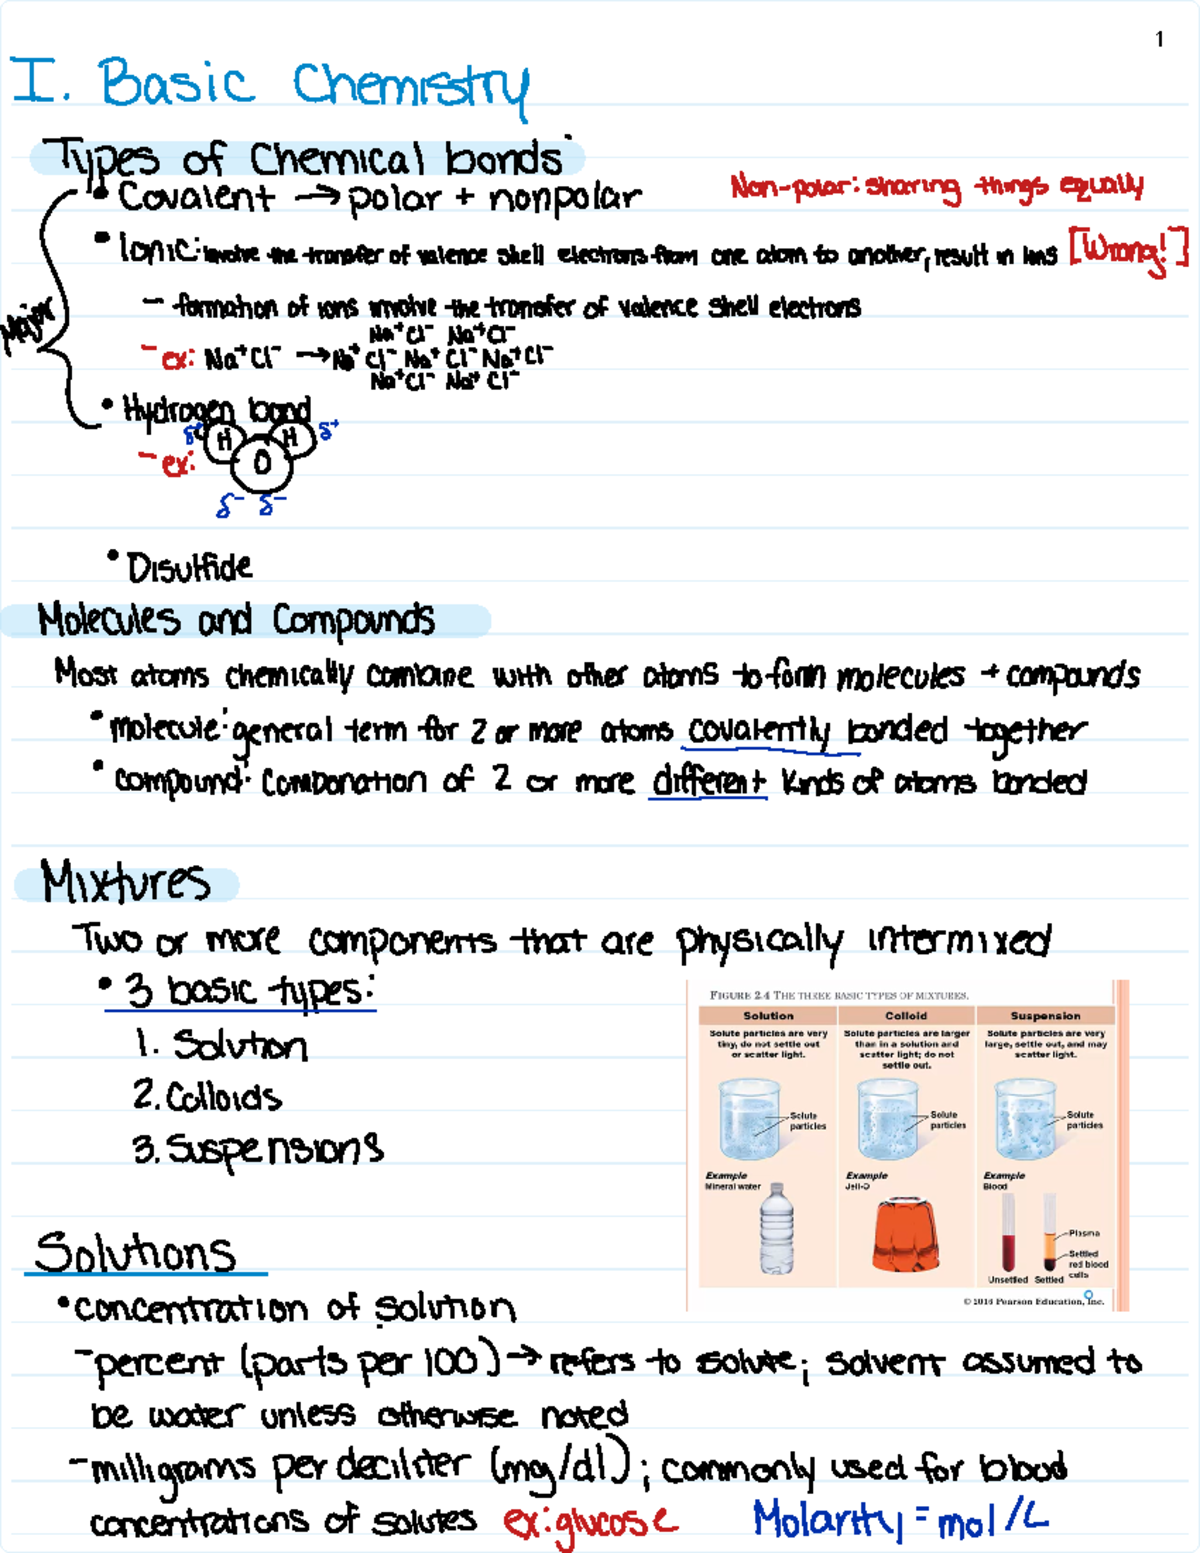 1
I. Basic Chemistry
Types of Chemical bonds
• Covalent → polar + nonpolar
Non-polar: sharing things equally
• Ionic: involve the transfer of valence shell electrons from one atom to another, result in ions [Wrong!]
– formation of ions involve the transfer of valence shell electrons
Major
Na⁺Cl⁻ Na⁺Cl⁻
- ex: Na⁺Cl⁻ → Na⁺ Cl⁻ Na⁺ Cl⁻ Na⁺Cl⁻
Na⁺Cl⁻ Na⁺ Cl⁻
• Hydrogen bond
δ⁺ H H δ⁺
- ex: O
δ⁻ δ⁻
• Disulfide
Molecules and Compounds
Most atoms chemically combine with other atoms to form molecules + compounds
• molecule: general term for 2 or more atoms covalently bonded together
• compound: Combonation of 2 or more different kinds of atoms bonded
Mixtures
Two or more components that are physically intermixed
• 3 basic types:
1. Solution
2. Colloids
3. Suspensions
FIGURE 2.4 THE THREE BASIC TYPES OF MIXTURES.
Solution
Solute particles are very
tiny, do not settle out
or scatter light.
Solute
particles
Example
Mineral water
Colloid
Solute particles are larger
than in a solution and
scatter light; do not
settle out.
Solute
particles
Example
Jell-O
Suspension
Solute particles are very
large, settle out, and may
scatter light.
Solute
particles
Example
Blood
Plasma
Settled
red blood
cells
Unsettled Settled
© 2016 Pearson Education, Inc.
Solutions
• concentration of solution
- percent (parts per 100) → refers to solute; solvent assumed to
be water unless otherwise noted
- milligrams per deciliter (mg/dl); commonly used for blood
concentrations of solutes ex: glucose Molarity = mol/L